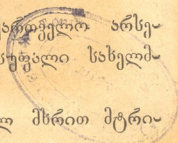 ართველო არსე-
სუფალი სახელმ-
ლ მხრით მტრი-